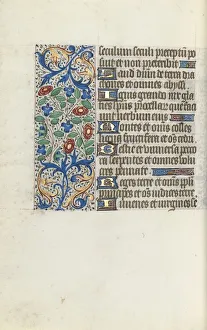 seculum seculi preceptum po
suit et non preteribit
Laudate dominum de terra dra
cones et omnes abyssi
Ignis grando nix gla
cies spiritus procellarum que faci
unt verbum eius
Montes et omnes colles
Bestie et universa peco
ra serpentes et omnes volu
cres pennate
Reges terre et omnes populi
principes et omnes iudices terre
Iuvenes et virgines se